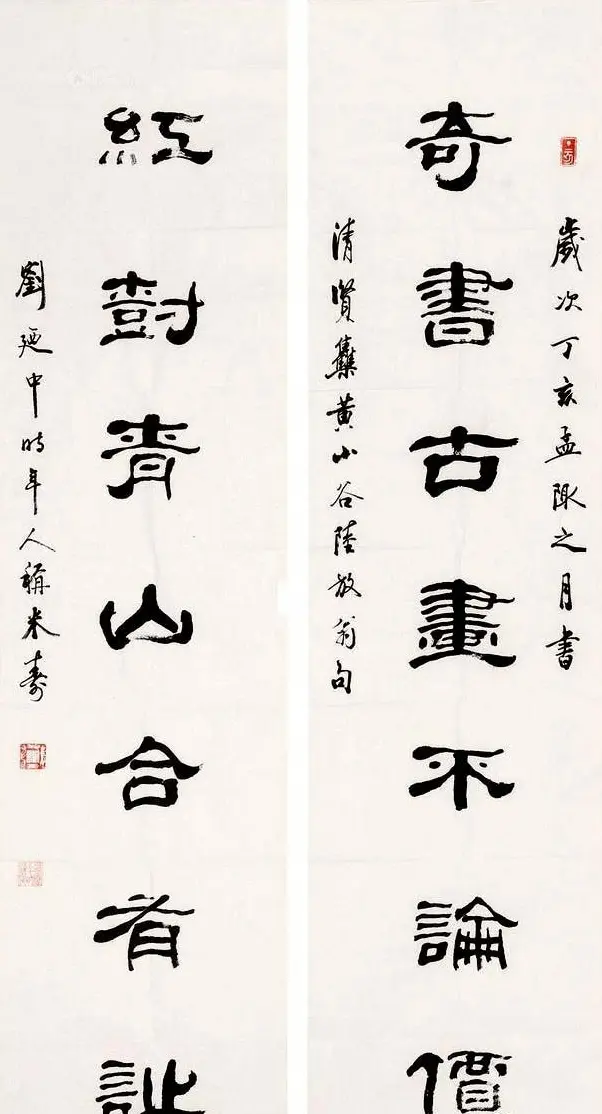 歲次丁亥孟陬之月書
奇書古畫不論價
清賢雧黄小谷陸放翁句
紅樹青山合有詩
劉廼中时年人稱米壽